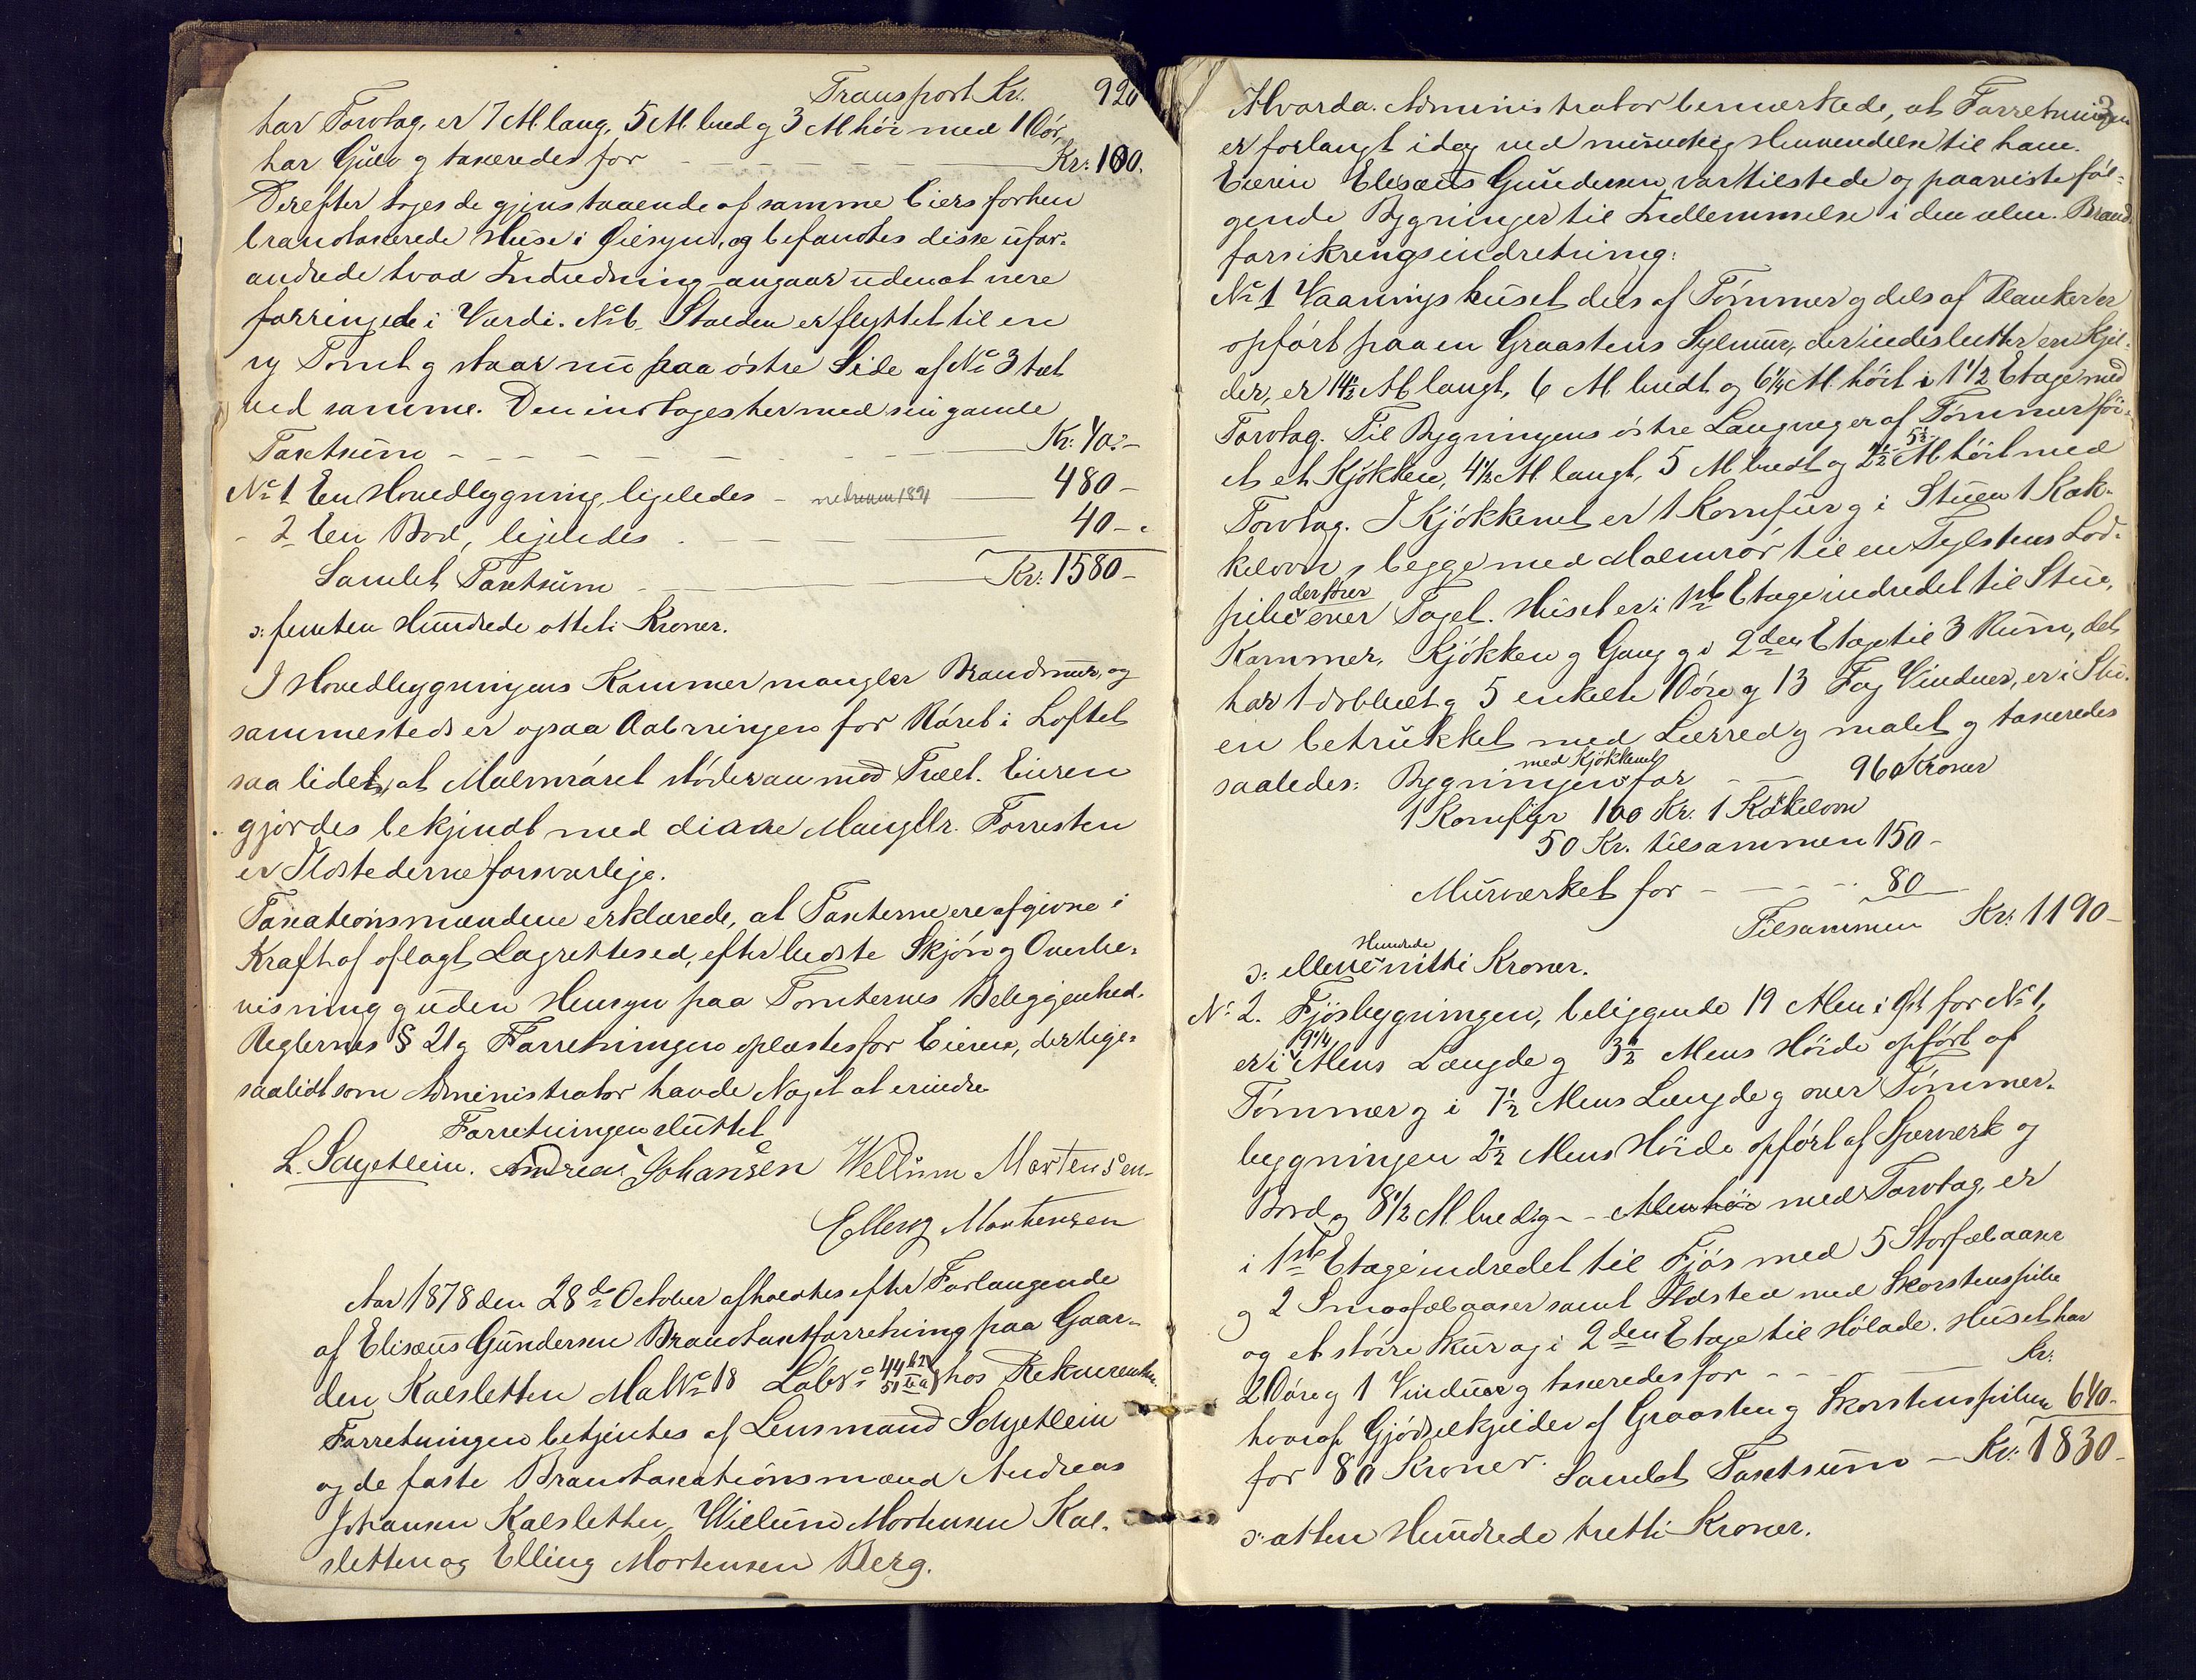 Transport Kr. 920
har Torvtag, er 7 Al. lang, 5 Al. bred og 3 Al. høi med 1 Dør,
har Gulv og taxeredes for - - - Kr: 100.
Derefter toges de gjenstaaende af samme Eiers forhen
brandtaxerede Huse i Øiesyn, og befandtes disse ufor-
andrede hvad Indredning angaar uden at være
forringede i Værdi. No 6 Stalden er flyttet til en
ny Tomt og staar nu paa østre Side af No 3 tæt
ved samme. Den indtages her med sin gamle
Taxtsum - - - Kr: 40:-
No 1 En Hovedbygning, ligeledes - nedreven 1891 480 -
- 2 En Bod, ligeledes - - 40 -
Samlet Taxtsum - Kr: 1580 -
ɔ: femten Hundrede otteti Kroner.
I Hovedbygningens Kammer mangler Brandmur, og
sammesteds er ogsaa Aabningen for Røret i Loftet
saa lidet, at Malmrøret støder an mod Træet. Eieren
gjordes bekjendt med disse Mangler. Forresten
er Ildstederne forsvarlige.
Taxationsmændene erklærede, at Taxterne ere afgivne i
Kraft af aflagt Lagrettesed, efter bedste Skjøn og Overbe-
visning og uden Hensyn paa Tomternes Beliggenhed.
Reglernes § 21 og Forretningen oplæstes for Eieren, der lige-
saalidt som Administrator havde Noget at erindre
Forretningen sluttet
L. Schjetlein. Andreas Johansen Wellum Mortensen
Elling Mortensen
Aar 1878 den 28de October afholdtes efter Forlangende
af Elisæus Gundersen Brandtaxtforretning paa Gaar-
den Kalsletten Mat No 18 Løbe No 44 b2 51 b a) hos Rekvirenten.
Forretningen betjentes af Lensmand Schjetlein
og de faste Brandtaxationsmænd Andreas
Johansen Kalsletten, Wiellum Mortensen Kal-
sletten og Elling Mortensen Berg.
3
Hvorda. Administrator bemærkede, at Forretningen
er forlangt idag ved mundtlig Henvendelse til ham.
Eieren Elisæus Gundersen var tilstede og paaviste føl-
gende Bygninger til Indlemmelse i den alm. Brand
forsikringsindretning:
No 1 Vaaningshuset dels af Tømmer og dels af Planker er
opført paa en Graastens Sylmur, der indeslutter en Kjel-
der, er 14½ Al. langt, 6 Al. bredt og 6¼ Al. høit i 1½ Etage med
Torvtag. Til Bygningens østre Langvæg er af Tømmer føi-
et et Kjøkken, 4½ Al. langt, 5 Al. bredt og 2½ 5½ Al. høit med
Torvtag. I Kjøkkenet er 1 Komfur og i Stuen 1 Kak-
kelovn, begge med Malmrør til en Teglstens Lod-
pibe der fører over Taget. Huset er i 1ste Etage indredet til Stue,
Kammer, Kjøkken og Gang og i 2den Etage til 3 Rum, det
har 1 dobbelt og 5 enkelte Døre og 13 Fag Vinduer, er i Stu-
en betrukket med Lærred og malet og taxeredes
saaledes: Bygningen med Kjøkkenet for - - 960 Kroner
1 Komfyr 100 Kr. 1 Kakelovn
50 Kr. tilsammen 150 -
Murværket for - - - 80
Tilsammen Kr: 1190 -
ɔ: elleve Hundrede nitti Kroner.
No 2. Fjøsbygningen, beliggende 19 Alen i Øst for No 1,
er i 9¼ Alens Længde og 3½ Alens Høide opført af
Tømmer og i 7½ Alens Længde og over Tømmer-
bygningen 2½ Alens Høide opført af Sperverk og
Bord og 8½ Al bred og - - Alen høi med Torvtag, er
i 1ste Etage indredet til Fjøs med 5 Storfæbaaser
og 2 Smaafæbaaser samt Ildsted med Skorstenspibe
og et større Skur og i 2den Etage til Hølade. Huset har
2 Døre og 1 Vindue og taxeredes for - - Kr:
hvoraf Gjødselkjelder af Graasten og Skorstenspiben 640 -
for 80 Kroner. Samlet Taxtsum - Kr: 1830 -
ɔ: atten Hundrede tretti Kroner.